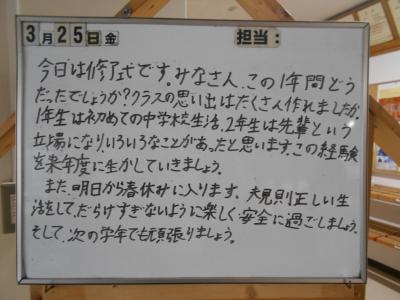 3月25日金 担当:
今日は修了式です。みなさん、この1年間どう
だったでしょうか?クラスの思い出はたくさん作れましたか。
1年生は初めての中学校生活、2年生は先輩という
立場になり、いろいろなことがあったと思います。この経験
を来年度に生かしていきましょう。
また、明日から春休みに入ります。規則正しい生
活をして、だらけすぎないように楽しく安全に過ごしましょう。
そして、次の学年でも頑張りましょう。